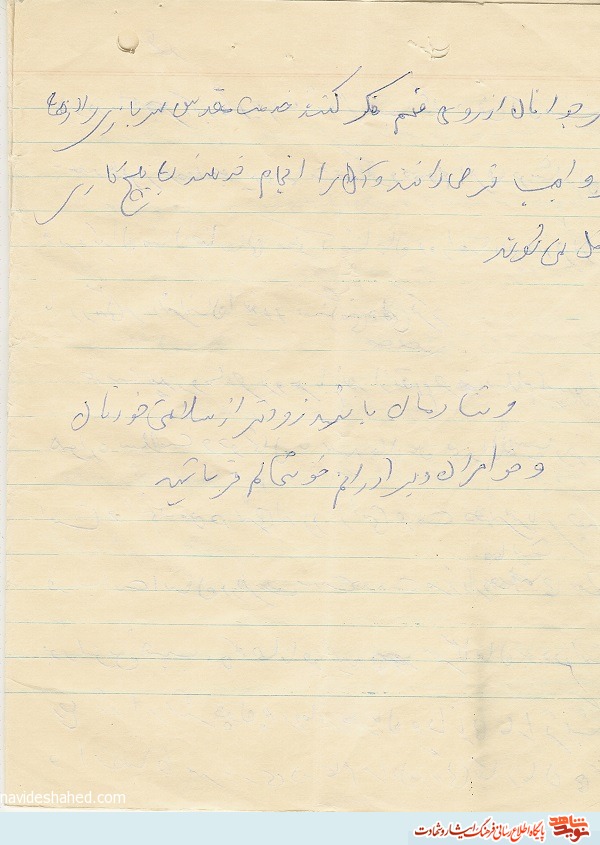 جوانان از روی فهم فکر کنند خدمت مقدس سربازی را
واجب فرض دانند و آن را انجام ندهند به هیچ کاری
نمی شوند
و شادمان باشید زودتر از سلامتی خودتان
و خواهران و برادرانم خوشحالم فرمائید
navideshahed.com
نوید شاهد
پایگاه اطلاع رسانی فرهنگ ایثار و شهادت